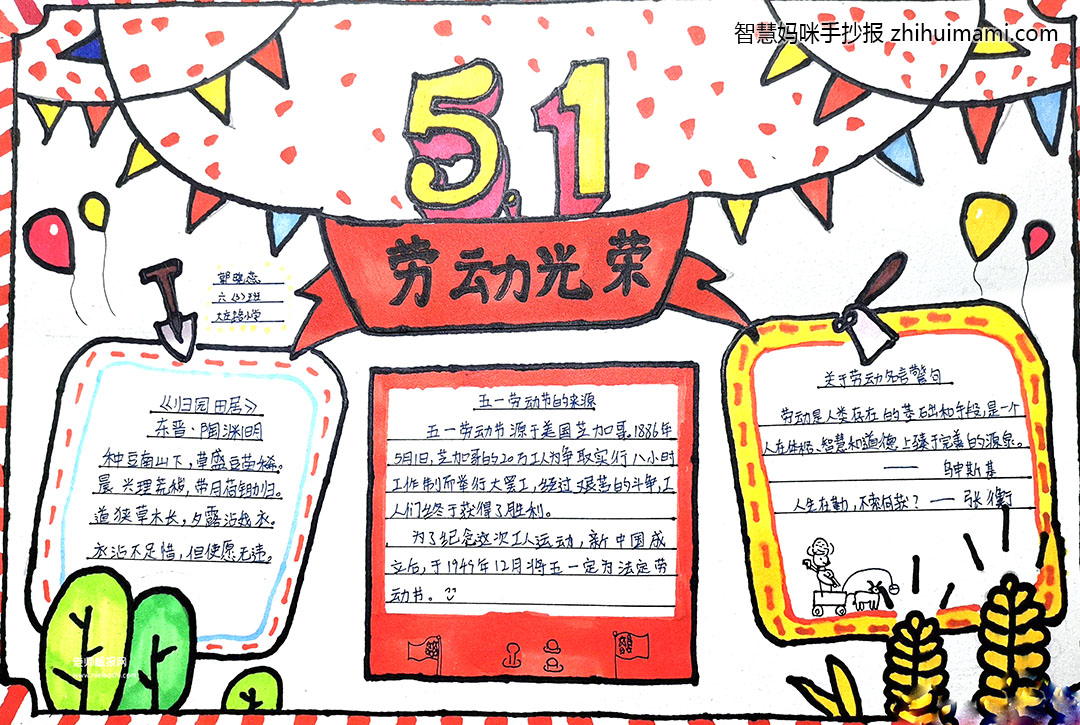 智慧妈咪手抄报 zhihuimami.com
5.1
劳动光荣
六(3)班
《归园田居》
东晋·陶渊明
种豆南山下,草盛豆苗稀。
晨兴理荒秽,带月荷锄归。
道狭草木长,夕露沾我衣。
衣沾不足惜,但使愿无违。
五一劳动节的来源
五一劳动节源于美国芝加哥。1886年
5月1日,芝加哥的20万工人为争取实行八小时
工作制而举行大罢工,经过艰苦的斗争,工
人们终于获得了胜利。
为了纪念这次工人运动,新中国成
立后,于1949年12月将五一定为法定劳
动节。
关于劳动名言警句
劳动是人类存在的基础和手段,是一个
人在体格、智慧和道德上臻于完善的源泉。
—— 乌申斯基
人生在勤,不索何获?—— 张衡